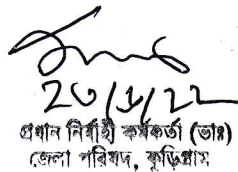 ২৩/১/২২
প্রধান নির্বাহী কর্মকর্তা (ভাঃ)
জেলা পরিষদ, কুড়িগ্রাম